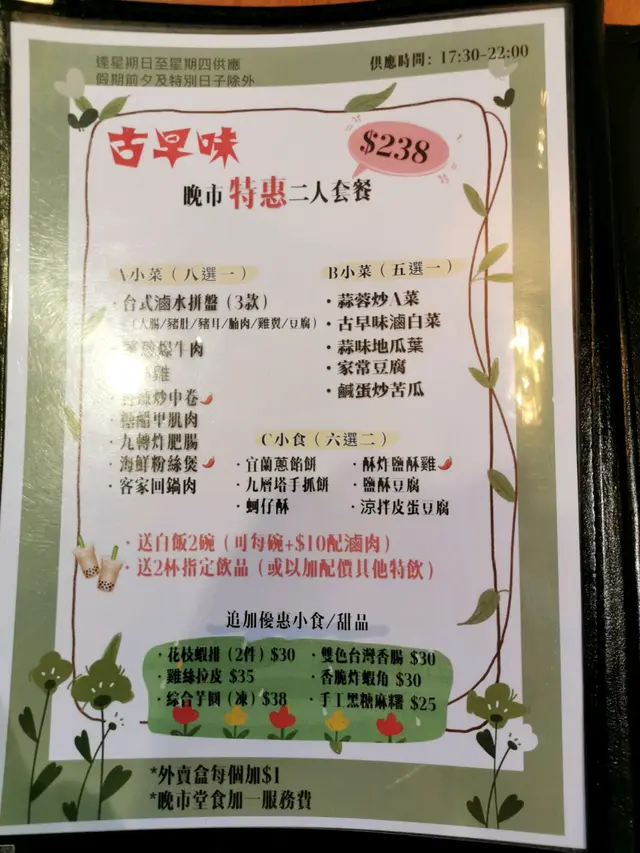 逢星期日至星期四供應
假期前夕及特別日子除外
供應時間: 17:30-22:00
古早味
$238
晚市特惠二人套餐
A小菜（八選一）
·台式滷水拼盤（3款）
大腸/豬肚/豬耳/腩肉/雞翼/豆腐)
蔥爆牛肉
雞
炒中卷
糖醋甲肌肉
·九轉炸肥腸
·海鮮粉絲煲
·客家回鍋肉
B小菜（五選一）
·蒜蓉炒A菜
·古早味滷白菜
·蒜味地瓜葉
·家常豆腐
·鹹蛋炒苦瓜
C小食（六選二）
·宜蘭蔥餡餅
·九層塔手抓餅
·蚵仔酥
·酥炸鹽酥雞
·鹽酥豆腐
·涼拌皮蛋豆腐
·送白飯2碗（可每碗+$10配滷肉）
·送2杯指定飲品（或以加配價其他特飲）
追加優惠小食/甜品
·花枝蝦排（2件）$30
·雞絲拉皮 $35
·綜合芋圓（凍）$38
·雙色台灣香腸 $30
·香脆炸蝦角 $30
·手工黑糖麻糬 $25
*外賣盒每個加$1
*晚市堂食加一服務費